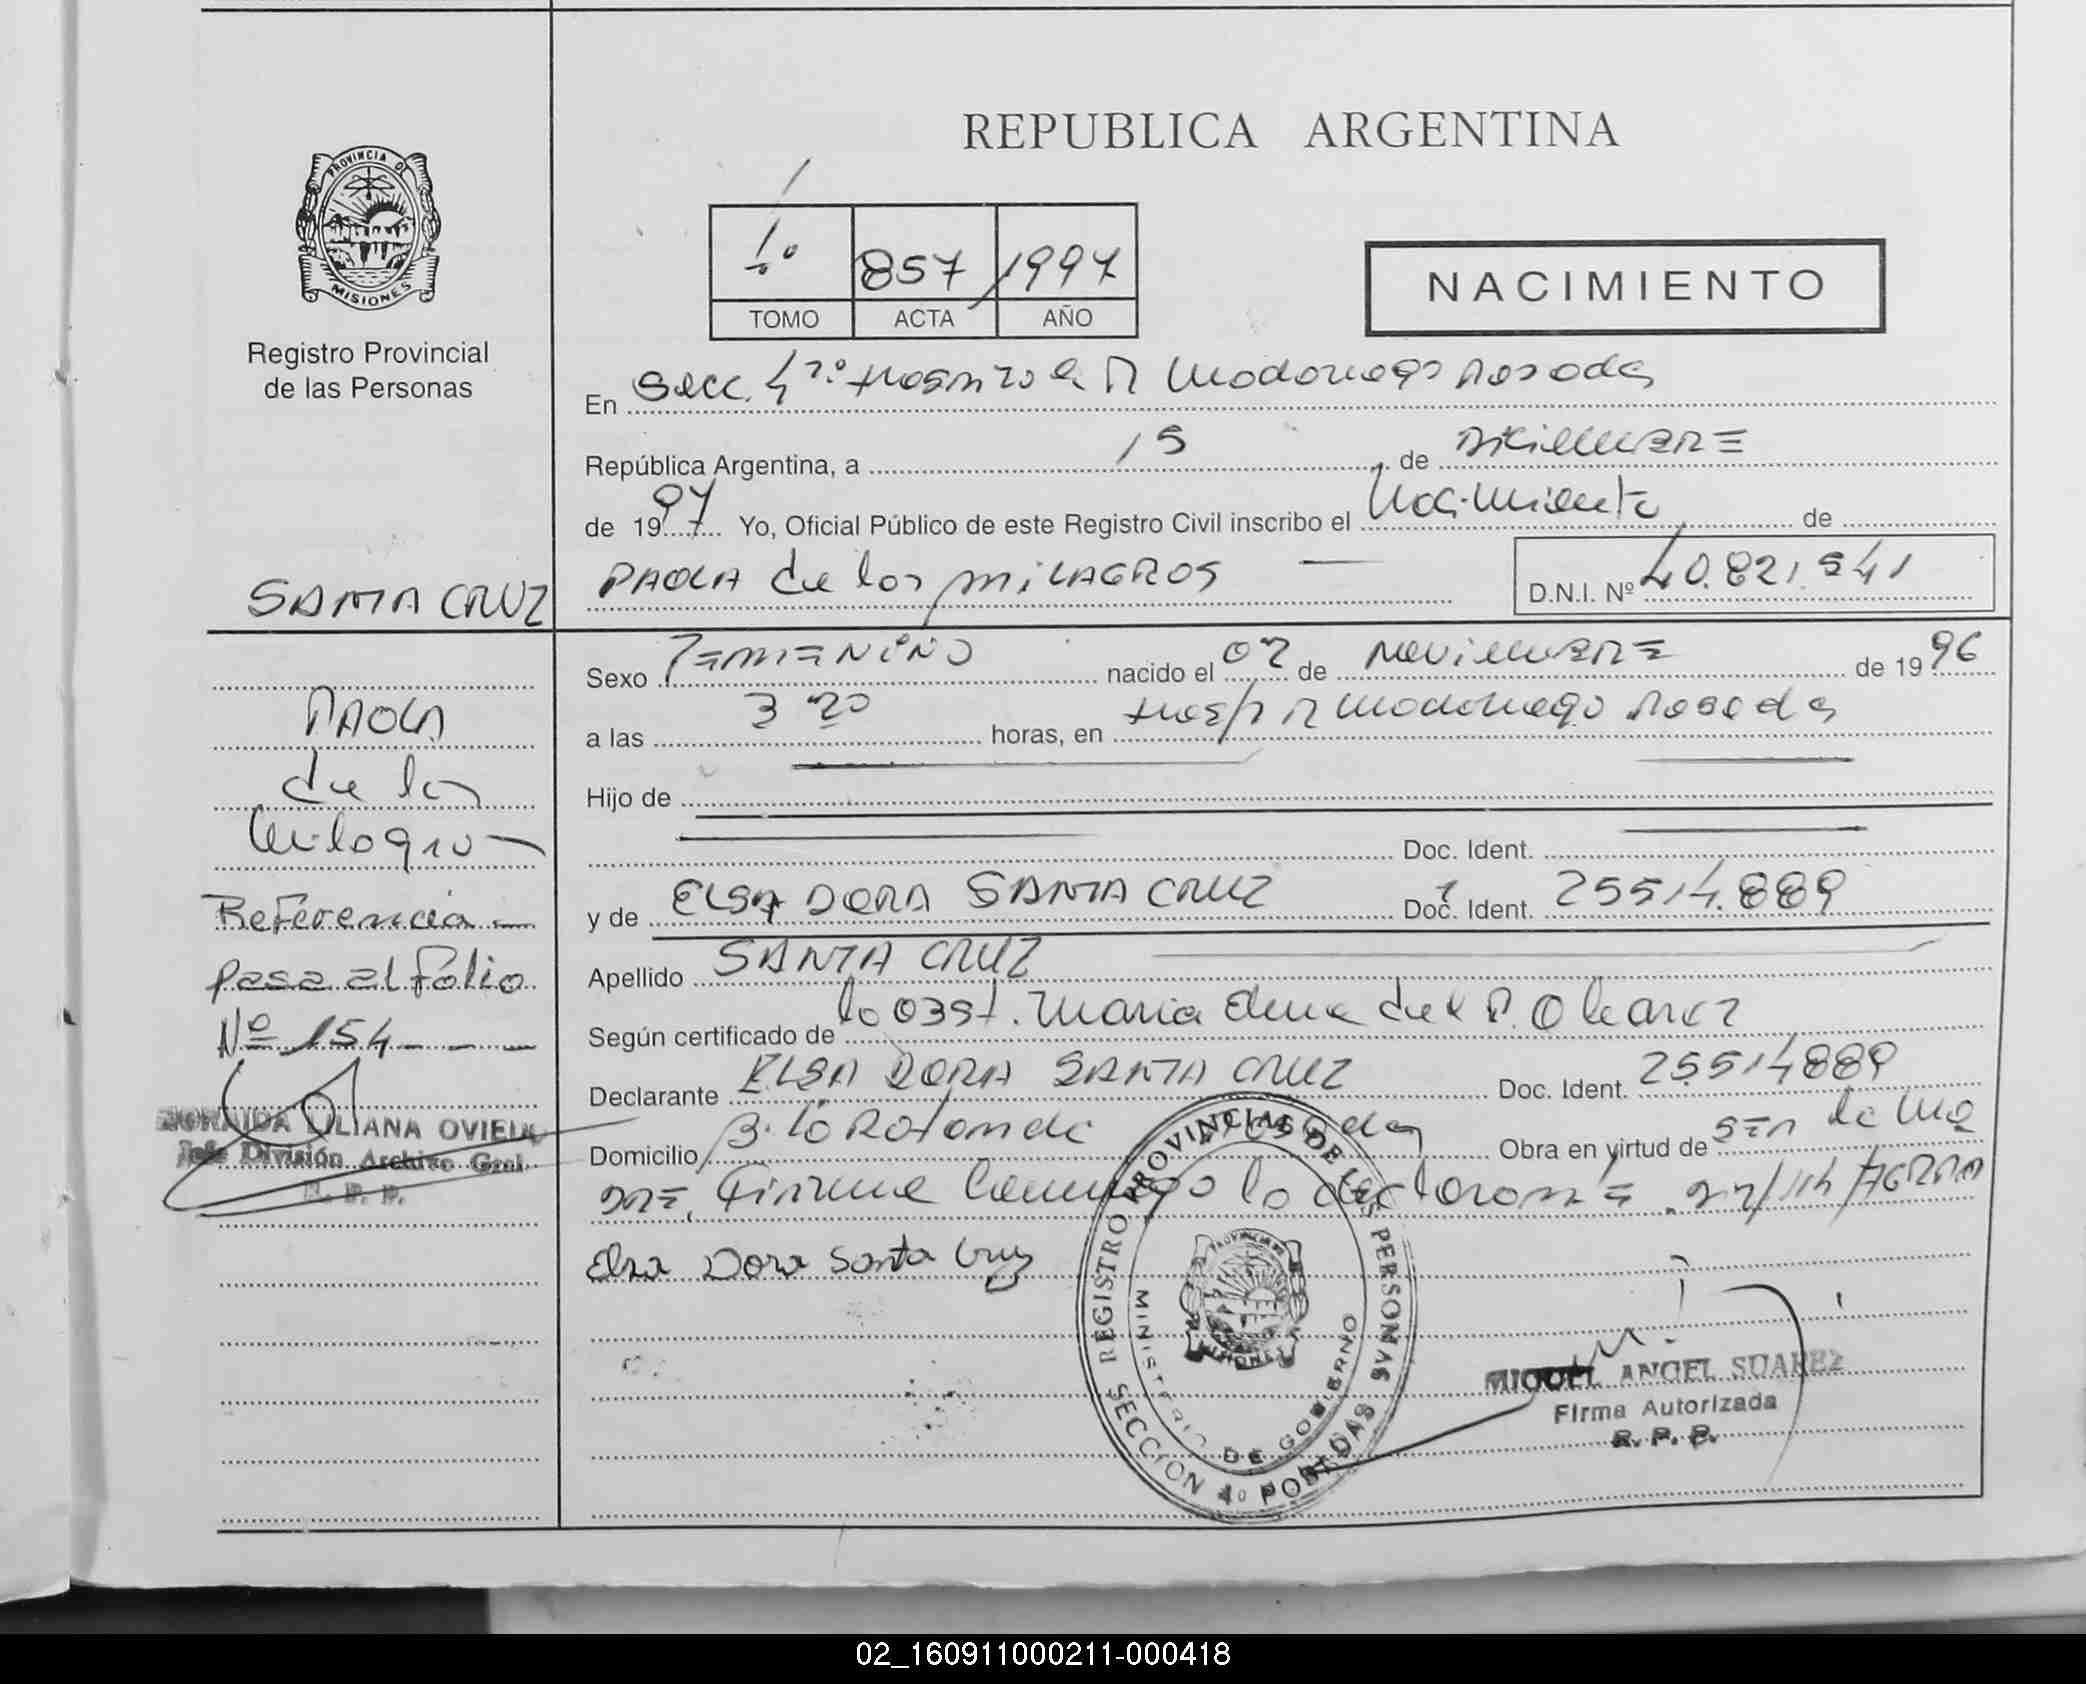 REPUBLICA ARGENTINA
PROVINCIA DE
MISIONES
Registro Provincial
de las Personas
1º 857 1997
TOMO ACTA AÑO
NACIMIENTO
En Secc. 4ª Hospital R Madariaga Posadas
República Argentina, a 15 de DICIEMBRE
de 1997 Yo, Oficial Público de este Registro Civil inscribo el Nacimiento de
PAOLA de los MILAGROS
D.N.I. Nº 40.821.541
SANTA CRUZ
Sexo FEMENINO nacido el 07 de NOVIEMBRE de 1996
a las 3 20 horas, en Hosp R Madariaga Posadas
Hijo de
Doc. Ident.
y de ELSA DORA SANTA CRUZ Doc. Ident. 25514.889
Apellido SANTA CRUZ
Según certificado de la Obst. Maria Elena del
Declarante ELSA DORA SANTA CRUZ Doc. Ident. 25514889
Domicilio Bº Rotonda Posadas Obra en virtud de SER la Ma
DRE. Firma Conmigo la declarante
Elsa Dora Santa Cruz
PAOLA
de los
Milagros
Referencia
pasa al Folio
Nº 154
LILIANA OVIEDO
Jefe División Archivo Gral.
R. P. P.
REGISTRO PROVINCIAL DE LAS PERSONAS
MINISTERIO DE GOBIERNO
SECCION 4º POSADAS
PROVINCIA DE
MISIONES
MIGUEL ANGEL SUAREZ
Firma Autorizada
R. P. P.
02_160911000211-000418